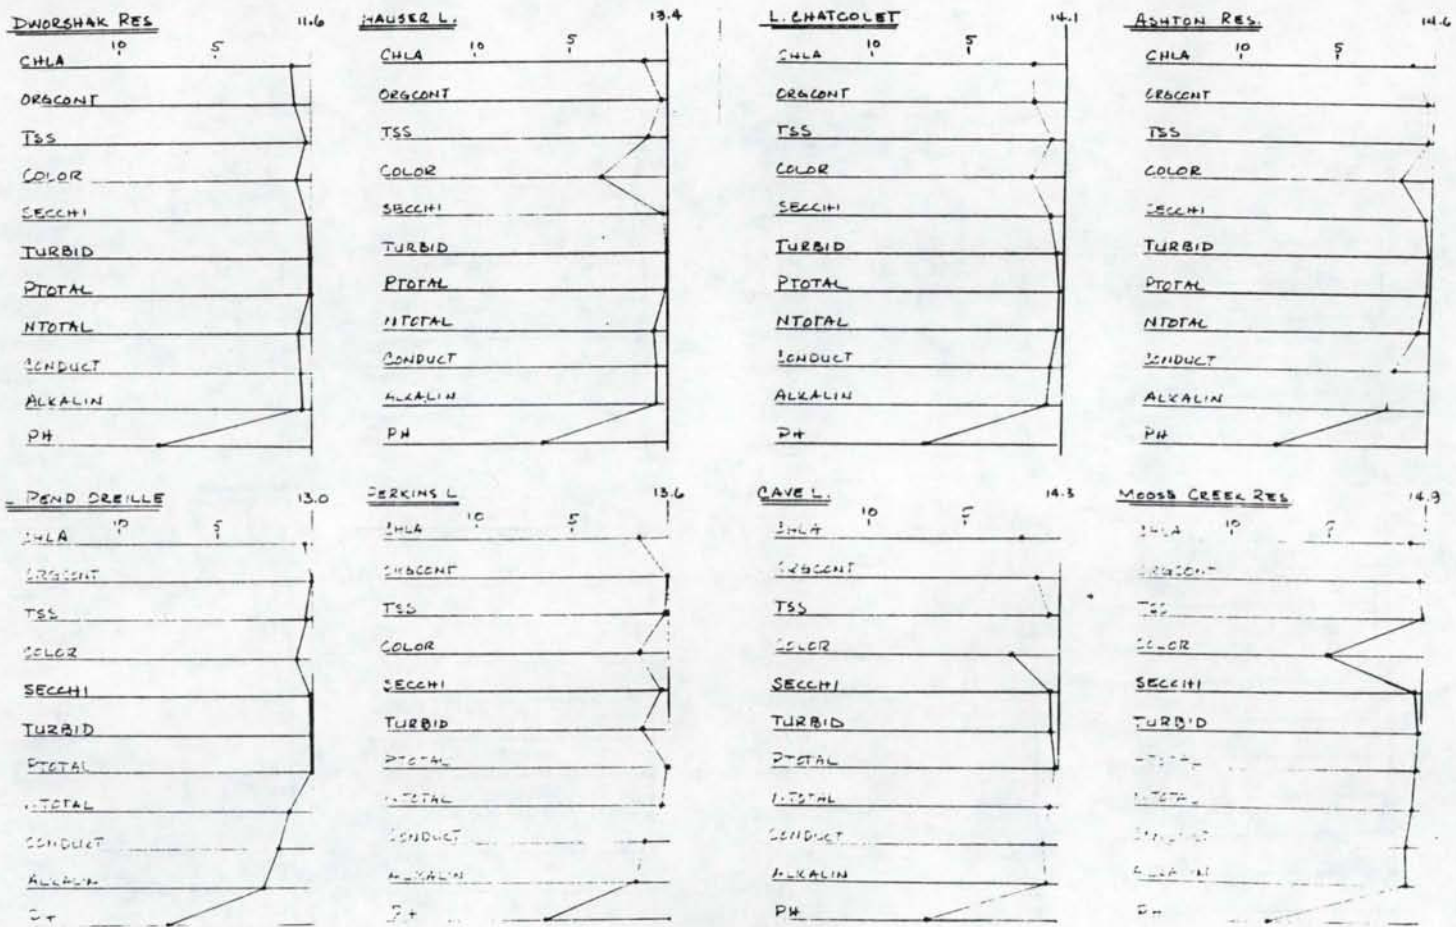 DWORSHAK RES 11.6
10 5
CHLA
ORGCONT
TSS
COLOR
SECCHI
TURBID
PTOTAL
NTOTAL
CONDUCT
ALKALIN
PH
HAUSER L. 13.4
10 5
CHLA
ORGCONT
TSS
COLOR
SECCHI
TURBID
PTOTAL
NTOTAL
CONDUCT
ALKALIN
PH
L. CHATCOLET 14.1
10 5
CHLA
ORGCONT
TSS
COLOR
SECCHI
TURBID
PTOTAL
NTOTAL
CONDUCT
ALKALIN
PH
ASHTON RES. 14.6
10 5
CHLA
ORGCONT
TSS
COLOR
SECCHI
TURBID
PTOTAL
NTOTAL
CONDUCT
ALKALIN
PH
L PEND OREILLE 13.0
10 5
CHLA
ORGCONT
TSS
COLOR
SECCHI
TURBID
PTOTAL
NTOTAL
CONDUCT
ALKALIN
PERKINS L 13.6
10 5
CHLA
ORGCONT
TSS
COLOR
SECCHI
TURBID
PTOTAL
NTOTAL
CONDUCT
ALKALIN
CAVE L. 14.3
10 5
CHLA
ORGCONT
TSS
COLOR
SECCHI
TURBID
PTOTAL
NTOTAL
CONDUCT
ALKALIN
PH
MOOSE CREEK RES 14.9
10
CHLA
ORGCONT
TSS
COLOR
SECCHI
TURBID
PTOTAL
NTOTAL
ALKALIN
PH